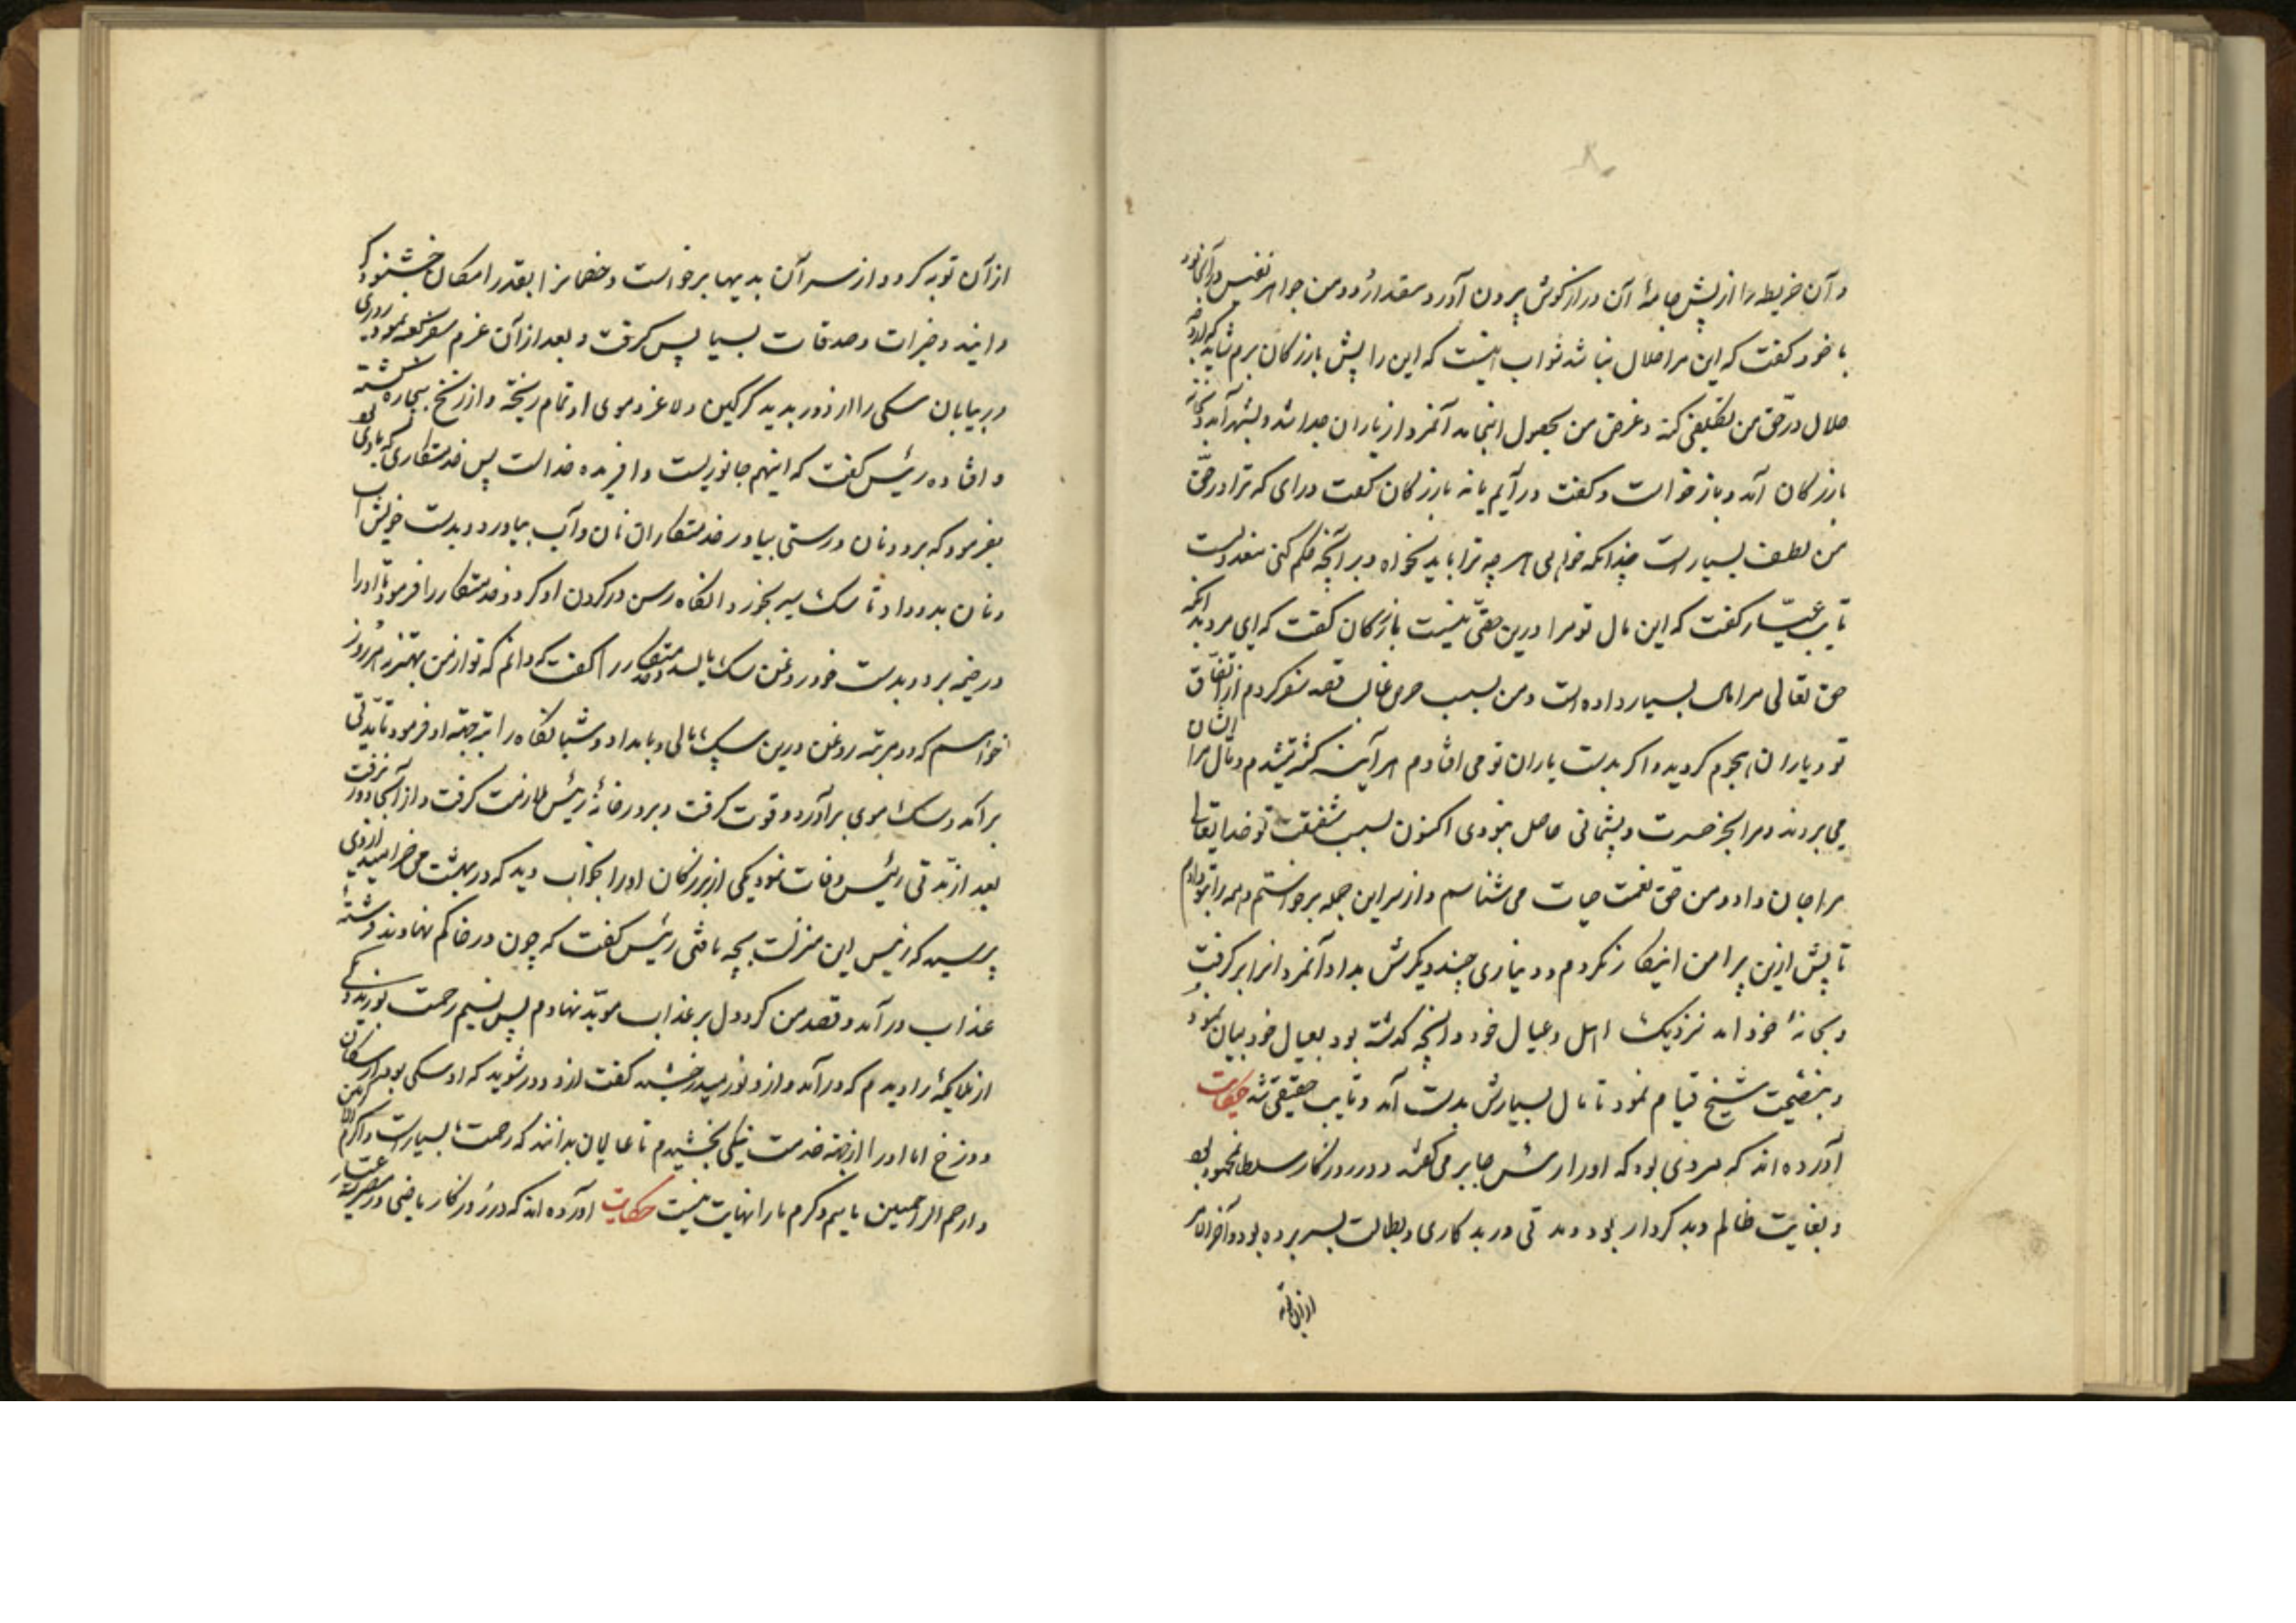 و آن خریطه را از پیش جامهٔ آن درازکوش بیرون آورد مقدار دو من جواهر نفیس در آن بود
با خود کفت که این مرا حلال نباشد ثواب اینست که این را پیش بازرکان برم شاید که
حلال در حق من تکلیفی کند و غرض من بحصول انجامد آنمرد از یاران جدا شد و بشهر آمد و
بازرکان آمد و باز خواست و کفت در آیم یا نه بازرکان کفت درای که ترا در حق
من لطف بسیار است چندانکه خواهی هر چه ترا باید بخواه و بر آنچه حکم کنی
تایب عیار کفت که این مال تو مرا درین حقی نیست بازرکان کفت که ای مرد بدانکه
حق تعالی مرا مال بسیار داده است و من بسبب حرص قصد سفر کردم از اتفاق
تو و یاران هجوم کردید و اکر بدست یاران تو می افتادم هر آینه کشته میشدم و مال مرا ایشان
می بردند و مرا بجز حسرت و پشیمانی حاصل نبودی اکنون بسبب شفقت تو خدایتعالی
مرا جان داد و من حق نعمت حیات می شناسم و از سر این جمله برخواستم و همه را بتو دادم
تا پیش ازین پیرامن اینکار نکردم و دیناری چند دیکرش بداد آنمرد انرا بر کرفت
و بخانهٔ خود آمد نزدیک اهل و عیال خود و آنچه کذشته بود بعیال خود بیان نمود
و بنصیحت شیخ قیام نمود تا مال بسیارش بدست آمد و تایب حقیقی شد حکایت
آورده اند که مردی بود که او را رئیس جابر می کفتند و در روزکار سلطان محمود بود
و بغایت ظالم و بد کردار بود و مدتی در بد کاری و بطالت بسر برده بود و آخر الامر
از آن توبه
از آن توبه کرد و از سر آن بدیها برخواست و خصمانرا بقدر امکان خشنود کر
دانید و خیرات و صدقات بسیار پیش کرفت و بعد از آن عزم سفر کعبه نمود روزی
در بیابان سکی را از دور بدید کرکین و لاغر و موی او تمام ریخته و از رنج بیچاره کشته
و افتاده رئیس کفت که اینهم جانوریست و افریده خداست پس خدمتکاری که با وی بود
بفرمود که برو و نان درستی بیاور خدمتکار ان نان و آب بیاورد و بدست خویش آب
و نان بدو داد تا سک سیر بخورد و انکاه رسن در کردن او کرد و خدمتکار را فرمود تا او را
در خیمه برد و بدست خود روغن سک بمالید و خدمتکار را کفت که دانم که تو از من بهتری امروز
خواهم که دو مرتبه روغن درین سک بمالی و بامداد و شبانکاه راتبه جهته او فرمود تا مدتی
برآمد و سک موی برآورد و قوت کرفت و بر در خانهٔ رئیس ملازمت کرفت و از آنجا دور نرفت
بعد از مدتی رئیس وفات نمود یکی از بزرکان او را بخواب دید که در بهشت می خرامید از وی
پرسید که رئیس این منزلت بچه یافتی رئیس کفت که چون در خاکم نهادند فرشتهٔ
عذاب در آمد و قصد من کرد و دل بر عذاب مؤبد نهادم پس نسیم رحمت وزید و یکی
از ملایکه را دیدم که درآمد و از و نور میدرخشید کفت از و دور شوید که او سکی بود از سکان
دوزخ اما او را از جهته خدمت سکی بخشیدم تا عالمیان بدانند که رحمت ما بسیار است و اکرم الاکرمین
و ارحم الراحمین مائیم و کرم ما را نهایت نیست حکایت آورده اند که در روزکار ماضی در مصر